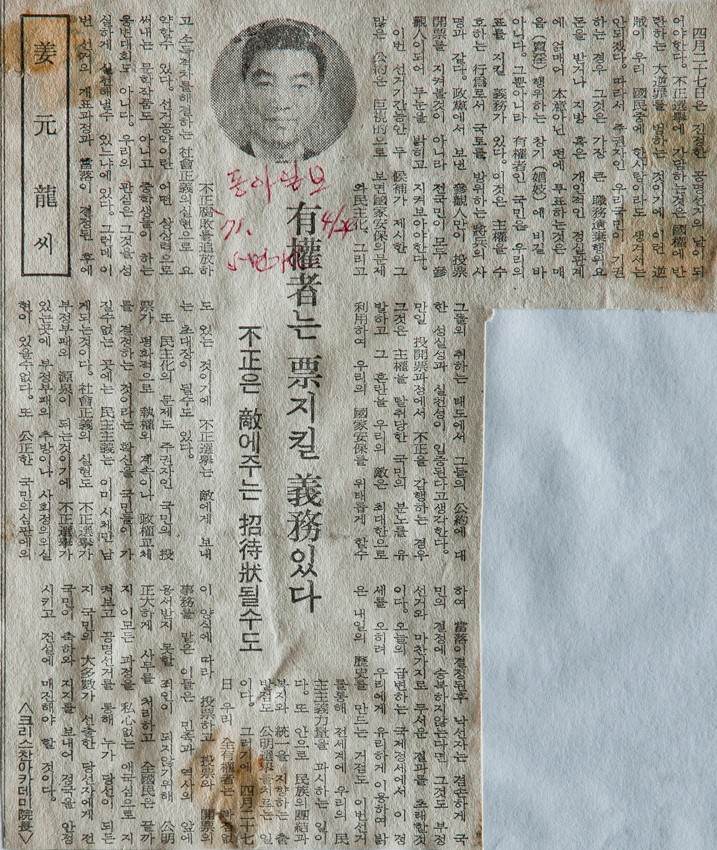 四月二十七日은 진정한 공명선거의 날이 되
어야한다. 不正選擧에 가담하는것은 國權에 반
란하는 大逆罪를 범하는 것이기에 이런 逆
賊이 우리 國民중에 한사람이라도 생겨서는
안되겠다. 따라서 주권자인 우리국민이 기권
하는 경우 그것은 가장 큰 職務遺棄행위요
돈을 받거나 지방 혹은 개인적인 정실관계
에 얽매어 本意아닌 편에 투표하는것은 매
음(賣淫)행위하는 창기(娼妓)에 비길 바
아니다. 그뿐아니라 有權者인 국민은 우리의
표를 지킬 義務가 있다. 이것은 主權을 수
호하는 行爲로서 국토를 방위하는 將兵의 사
명과 같다. 政黨에서 보낸 參觀人만이 投票
開票를 지켜볼것이 아니라 전국민이 모두 參
觀人이되어 부눈을 밝히고 지켜보아야한다.
이번 선거기간동안 두 候補가 제시한 그
많은 公約은 巨視的으로 보면 國家安保의 문제
와 民主化, 그리고
有權者는 票지킬 義務있다
不正은 敵에주는 招待狀될수도
동아일보
71. 4/26
5면
不正腐敗를 追放하
고 소득격차를 해결하는 社會正義의 실현으로 요
약할수 있다. 선거공약이란 어떤 상상력으로
써내는 문학작품도 아니고 중학생들이 하는
웅변대회도 아니다. 우리의 관심은 그것을 성
실하게 실천해낼수 있느냐에 있다. 그런데 이
번 선거의 개표과정과 當落이 결정된 후에
姜元龍씨
그들의 취하는 태도에서 그들의 公約에 대
한 성실성과 실천성이 입증된다고 생각한다.
만일 投開票과정에서 不正을 감행하는 경우
그것은 主權을 탈취당한 국민의 분노를 유
발하고 그 혼란을 우리의 敵은 최대한으로
利用하여 우리의 國家安保를 위태롭게 할수
도 있는 것이기에 不正選擧는 敵에게 보내
는 초대장이 될수도 있다.
또 民主化의 문제도 주권자인 국민의 投
票가 평화적으로 執權의 계속이나 政權교체
를 결정하는 것이라는 확신을 국민들이 가
질수없는 곳에는 民主主義는 이미 시체만 남
게되는것이다. 社會正義의 실현도 不正選擧가
부정부패의 源泉이 되는것이기에 不正選擧가
있는곳에 부정부패의 추방이나 사회정의의 실
현이 있을수없다. 또 公正한 국민의심판에의
하여 當落이결정된후 낙선자는 겸손하게 국
민의 결정에 승복하지않는다면 그것도 부정
선거와 마찬가지로 무서운 결과를 초래할것
이다. 오늘의 급변하는 국제정세에서 이 정
세를 오히려 우리에게 유리하게 이용하여 밝
은 내일의 歷史를 만드는 거점도 이번선거
를통해 전세계에 우리의 民
主主義力量을 과시하는 일이
다. 또 안으로 民族의團結과
복지와 統一을 지향하는 출
발점도 公明選擧를치르는 일
이다. 그러기에 四月二十七
日 우리 全有權者는
이 양식에 따라 投票하고 投票와 開票의
事務를 맡은 이들은 민족과 역사의 앞에
용서받지 못할 죄인이 되지않기위해 公明
正大하게 사무를 처리하고 全國民은 끝까
지 이모든 과정을 私心없는 애국심으로 지
켜보고 공명선거를 통해 누가 당선이 되든
지 국민의 大多數가 선출한 당선자에게 전
국민이 축하와 지지를 보내어 정국을 안정
시키고 건설에 매진해야 할 것이다.
<크리스챤아카데미院長>